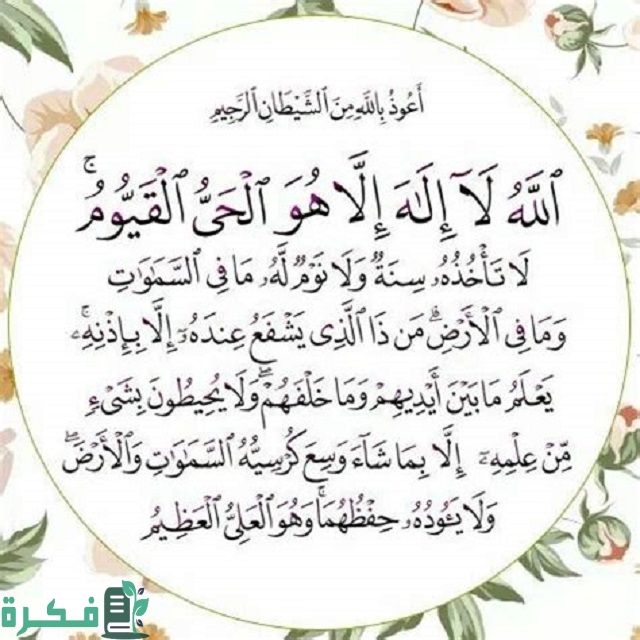 أَعُوذُ بِاللَّهِ مِنَ الشَّيْطَانِ الرَّجِيمِ
ٱللَّهُ لَآ إِلَٰهَ إِلَّا هُوَ ٱلْحَىُّ ٱلْقَيُّومُ ۚ
لَا تَأْخُذُهُۥ سِنَةٌ وَلَا نَوْمٌ لَّهُۥ مَا فِى ٱلسَّمَٰوَٰتِ
وَمَا فِى ٱلْأَرْضِ ۗ مَن ذَا ٱلَّذِى يَشْفَعُ عِندَهُۥٓ إِلَّا بِإِذْنِهِۦ ۚ
يَعْلَمُ مَا بَيْنَ أَيْدِيهِمْ وَمَا خَلْفَهُمْ ۖ وَلَا يُحِيطُونَ بِشَىْءٍ
مِّنْ عِلْمِهِۦٓ إِلَّا بِمَا شَآءَ وَسِعَ كُرْسِيُّهُ ٱلسَّمَٰوَٰتِ وَٱلْأَرْضَ ۖ
وَلَا يَـُٔودُهُۥ حِفْظُهُمَا ۚ وَهُوَ ٱلْعَلِىُّ ٱلْعَظِيمُ
فكرة